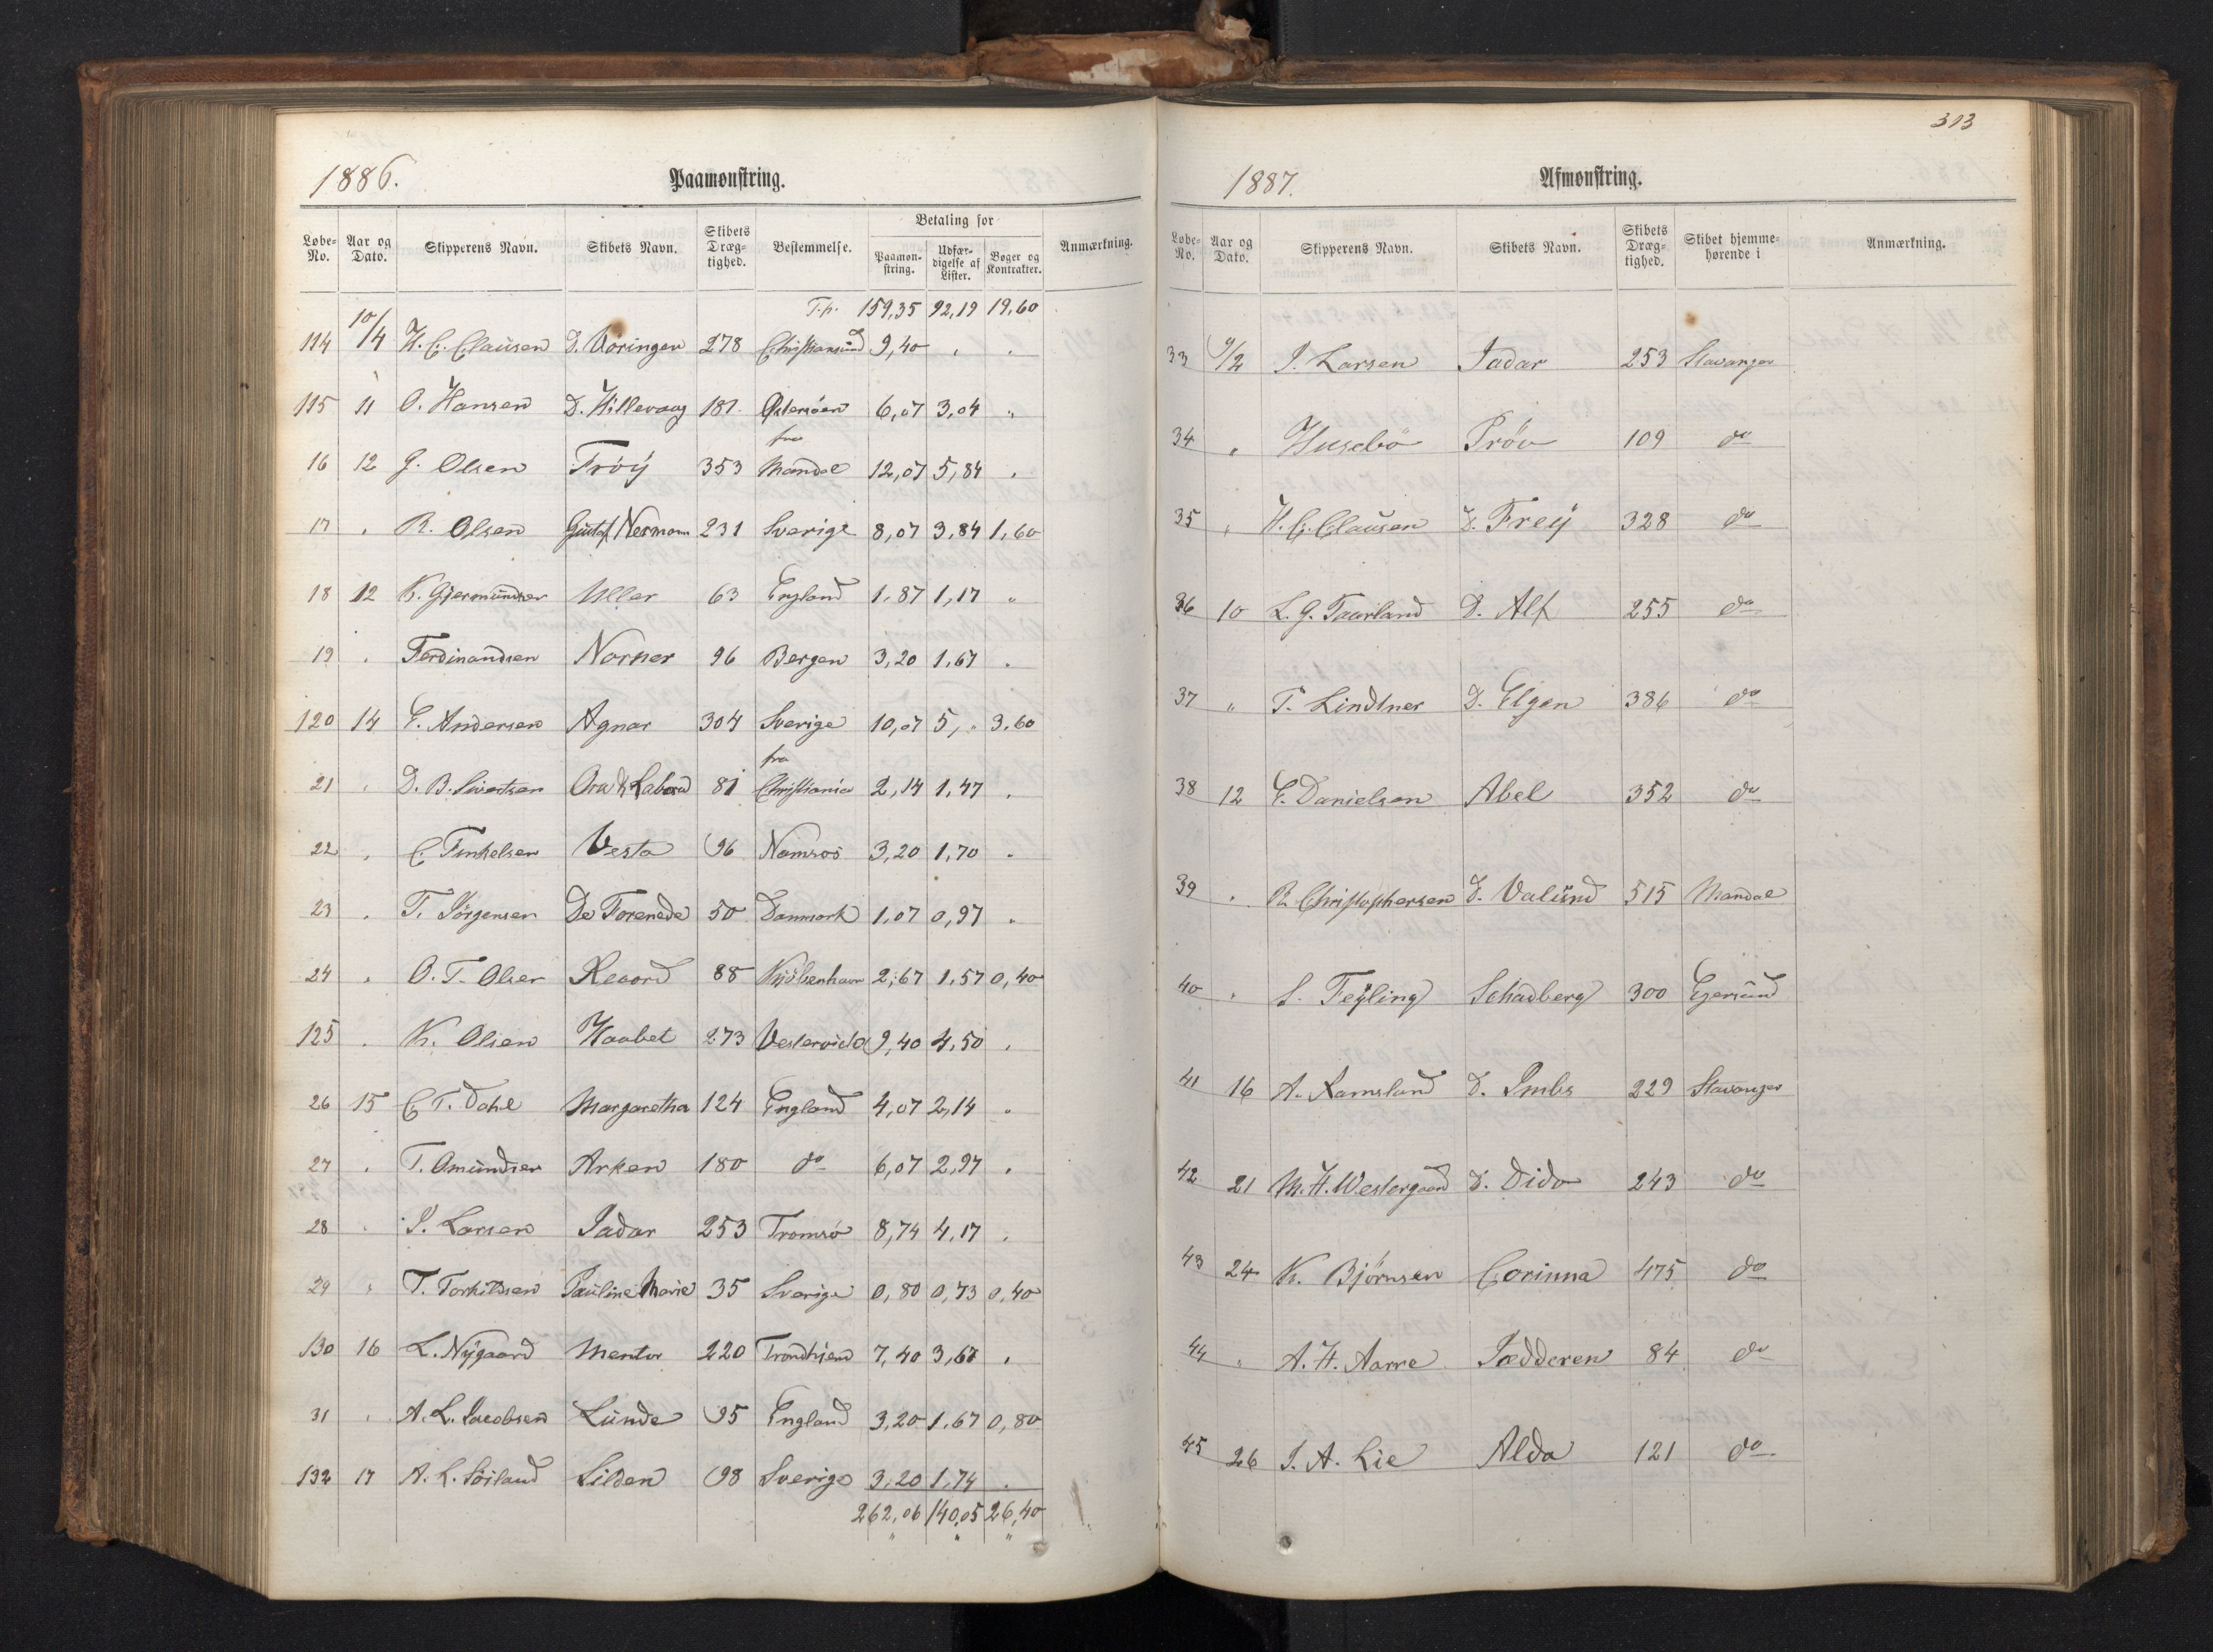 1886.
Paamønstring.
Løbe-No. Aar og Dato. Skipperens Navn. Skibets Navn. Skibets Dræg-tighed. Bestemmelse. Betaling for Paamøn-string. Udfær-digelse af Lister. Bøger og Kontrakter. Anmærkning.
T.p. 159,35 92,19 19,60
114 10/4 H. C. Clausen D. Væringen 278 Christiansund 9,40 " "
115 11 O. Hansen D. Hillevaag 181 Østersöen 6,07 3,04 "
fra
16 12 G. Olsen Fröÿ 353 Mandal 12,07 5,84 "
17 " R. Olsen Gustaf Nerman 231 Sverige 8,07 3,84 1,60
18 12 K. Gjermundsen Uller 63 England 1,87 1,17 "
19 " Ferdinandsen Norner 96 Bergen 3,20 1,67 "
120 14 E. Andersen Agnar 304 Sverige 10,07 5, " 3,60
fra
21 " D. B. Sivertsen Ora & Labora 81 Christiania 2,14 1,47 "
22 " C. Vesta 96 Namsos 3,20 1,70 "
23 " T. Jörgensen De Forenede 50 Danmark 1,07 0,97 "
24 " O. T. Olsen Record 88 Kjöbenhavn 2,67 1,57 0,40
125 " K. Olsen Haabet 273 9,40 4,50 "
26 15 C. T. Dahl Margaretha 124 England 4,07 2,14 "
27 " T. Omundsen Arken 180 do 6,07 2,97 "
28 " J. Larsen Jadar 253 Tromsö 8,74 4,17 "
29 " T. Torkildsen Pauline Marie 35 Sverige 0,80 0,73 0,40
130 16 L. Nÿgaard Mentor 220 Trondhjem 7,40 3,67 "
31 " A. L. Jacobsen Lunde 95 England 3,20 1,67 0,80
132 17 A. L. Söiland Silden 98 Sverige 3,20 1,74 "
262,06 140,05 26,40
313
1887.
Afmønstring.
Løbe-No. Aar og Dato. Skipperens Navn. Skibets Navn. Skibets Dræg-tighed. Skibet hjemme-hørende i Anmærkning.
33 9/2 J. Larsen Jadar 253 Stavanger
34 " Husebö Pröv 109 do
35 " H. C. Clausen D. Freÿ 328 do
36 10 L. G. Taarland D. Alf 255 do
37 " T. Lindtner D. Elgen 386 do
38 12 E. Danielsen Abel 352 do
39 " R. Christophersen D. Valund 515 Mandal
40 " S. Feÿling Schadberg 300 Egersund
41 16 A. Ramsland D. Imbs 229 Stavanger
42 21 M. H. Westergaard D. Dido 243 do
43 24 K. Björnsen Corinna 475 do
44 " A. H. Aarre Jædderen 84 do
45 26 J. A. Lie Alda 121 do